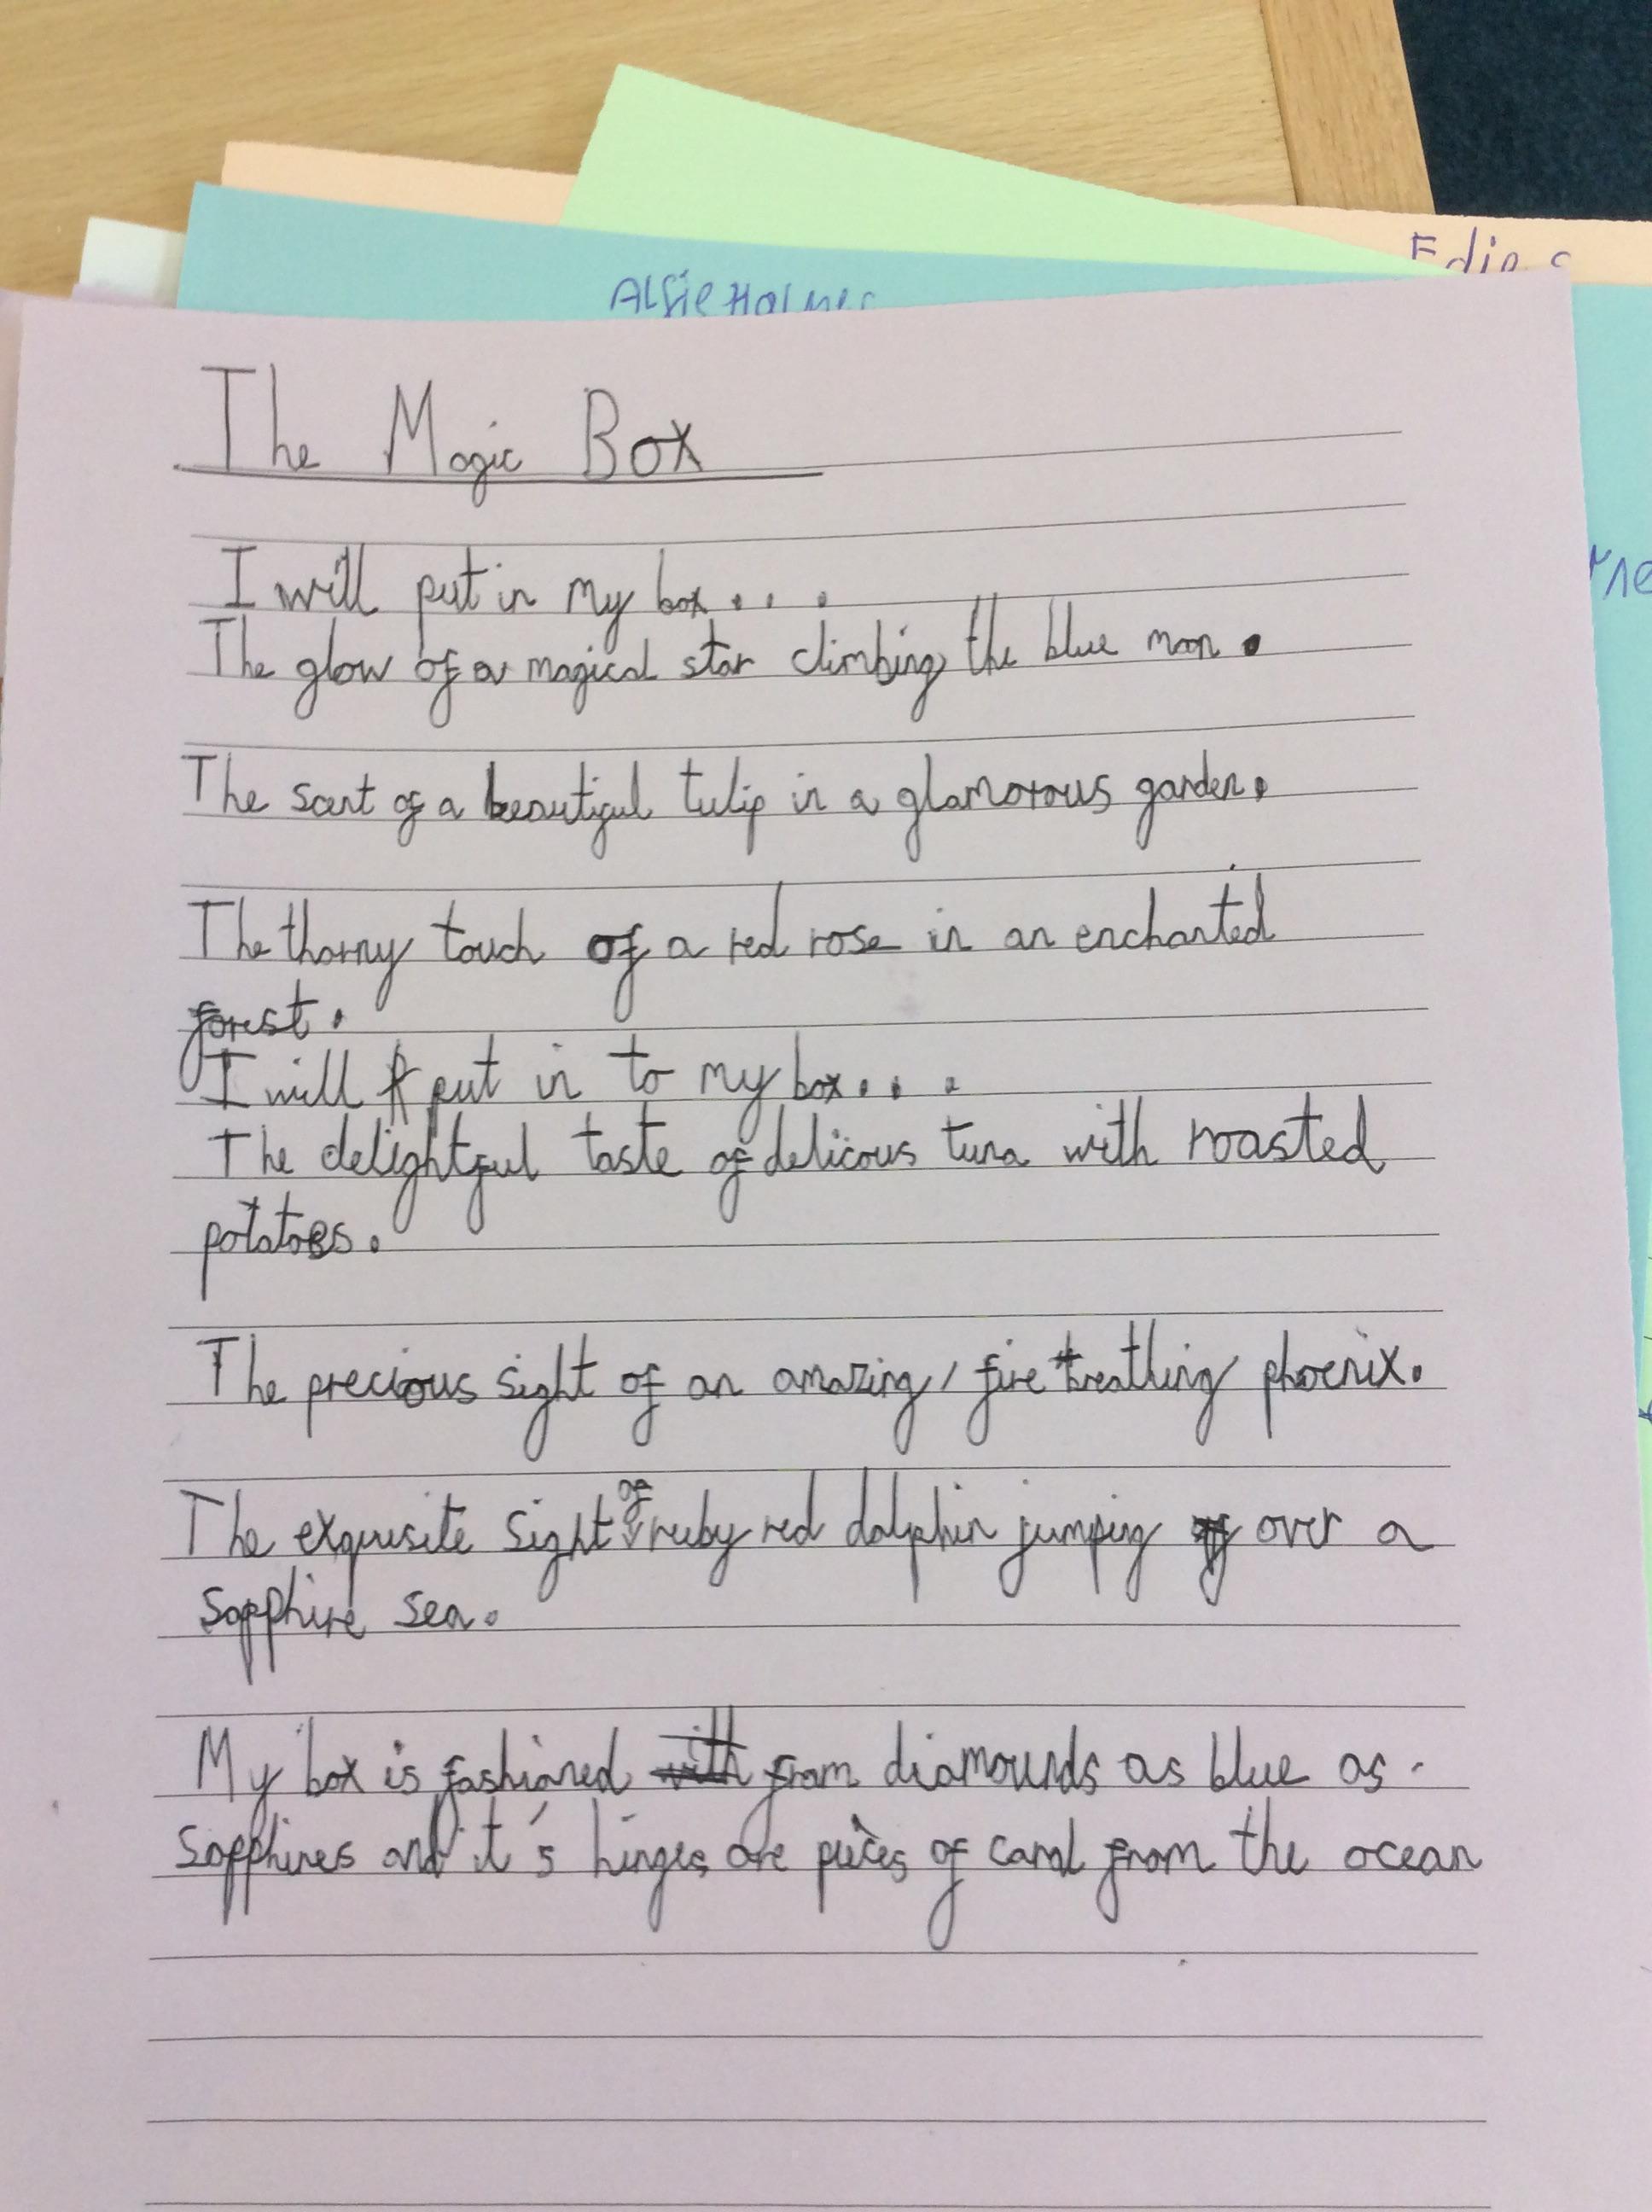 Edie
Alfie
The Magic Box
I will put in my box . . .
The glow of a magical star climbing the blue moon.
The scent of a beautiful tulip in a glamorous garden.
The thorny touch of a red rose in an enchanted
forest.
I will put in to my box . . .
The delightful taste of delicous tuna with roasted
potatoes.
The precious sight of an amazing, fire breathing phoenix.
The exquisite sight of ruby red dolphin jumping over a
sapphire sea.
My box is fashioned with from diamounds as blue as
sapphires and it's hinges are pieces of coral from the ocean